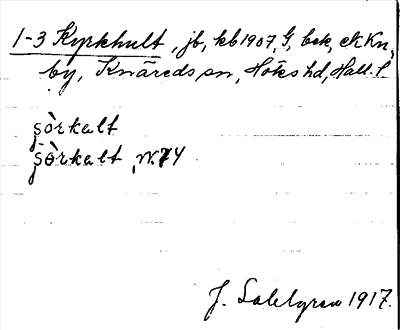 1-3 Kyrkhult, jb, kb 1907, G, bek, ek Kn,
by, Knäreds sn, Höks hd, Hall. l
şòrkalt
şòrkalt, W.74
J. Sahlgren 1917.